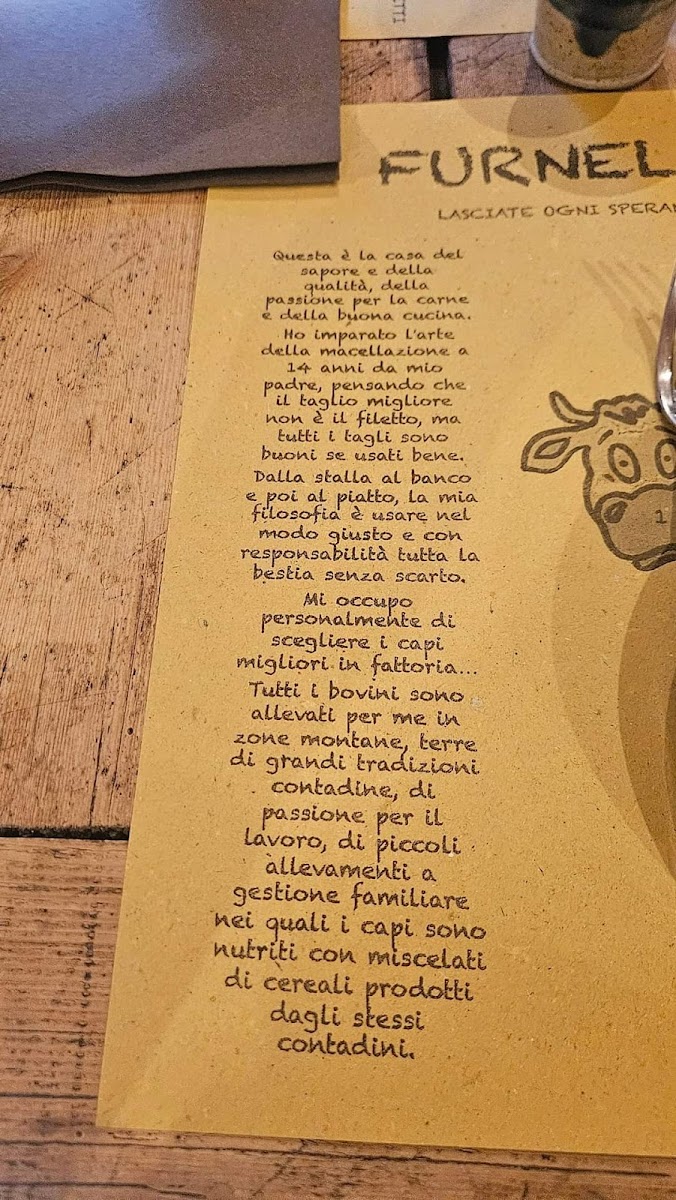 FURNEL
LASCIATE OGNI SPERAN
Questa è la casa del
sapore e della
qualità, della
passione per la carne
e della buona cucina.
Ho imparato l'arte
della macellazione a
14 anni da mio
padre, pensando che
il taglio migliore
non è il filetto, ma
tutti i tagli sono
buoni se usati bene.
Dalla stalla al banco
e poi al piatto, la mia
filosofia è usare nel
modo giusto e con
responsabilità tutta la
bestia senza scarto.
Mi occupo
personalmente di
scegliere i capi
migliori in fattoria...
Tutti i bovini sono
allevati per me in
zone montane, terre
di grandi tradizioni
contadine, di
passione per il
lavoro, di piccoli
allevamenti a
gestione familiare
nei quali i capi sono
nutriti con miscelati
di cereali prodotti
dagli stessi
contadini.
1